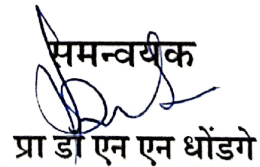 समन्वयक
प्रा डॉ एन एन धोंडगे